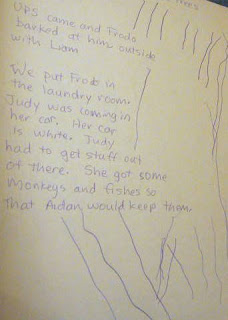 Ups came and Frodo
barked at him outside
with Liam
We put Frodo in
the laundry room.
Judy was coming in
her car. Her car
is white. Judy
had to get stuff out
of there. She got some
Monkeys and fishes so
that Aidan would keep them.